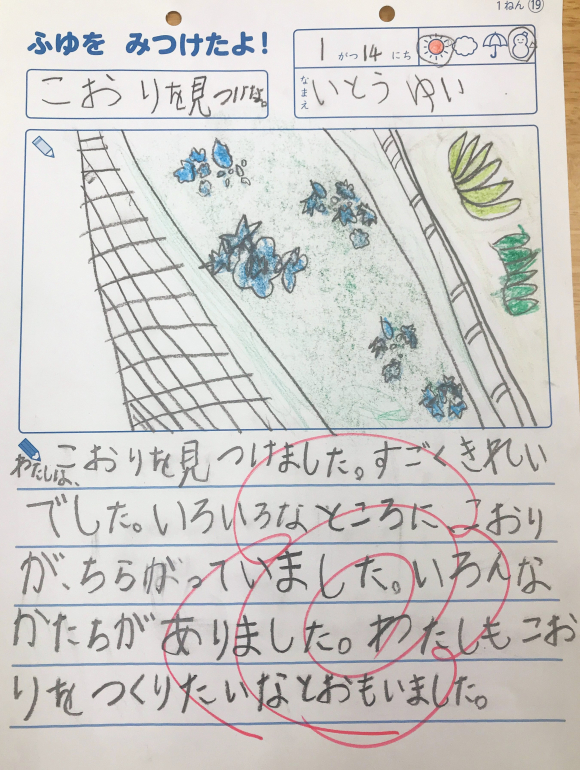 1ねん ⑲
ふゆを みつけたよ!
1がつ14にち
こおりを見つけた。
なまえ いとう ゆい
わたしは、こおりを見つけました。すごくきれい
でした。いろいろなところにこおり
が、ちらがっていました。いろんな
かたちがありました。わたしもこお
りをつくりたいなとおもいました。